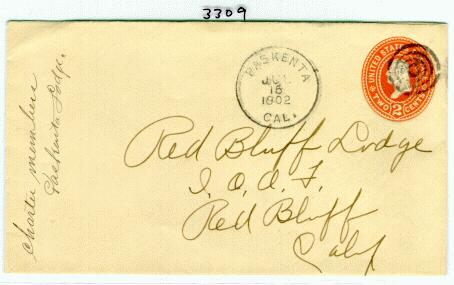 3309
PASKENTA
JUL
15
1902
CAL.
UNITED STATES
TWO 2 CENTS
Red Bluff Lodge
I.O.O.F.
Red Bluff
Calif
Charter members
Paskenta Lodge.